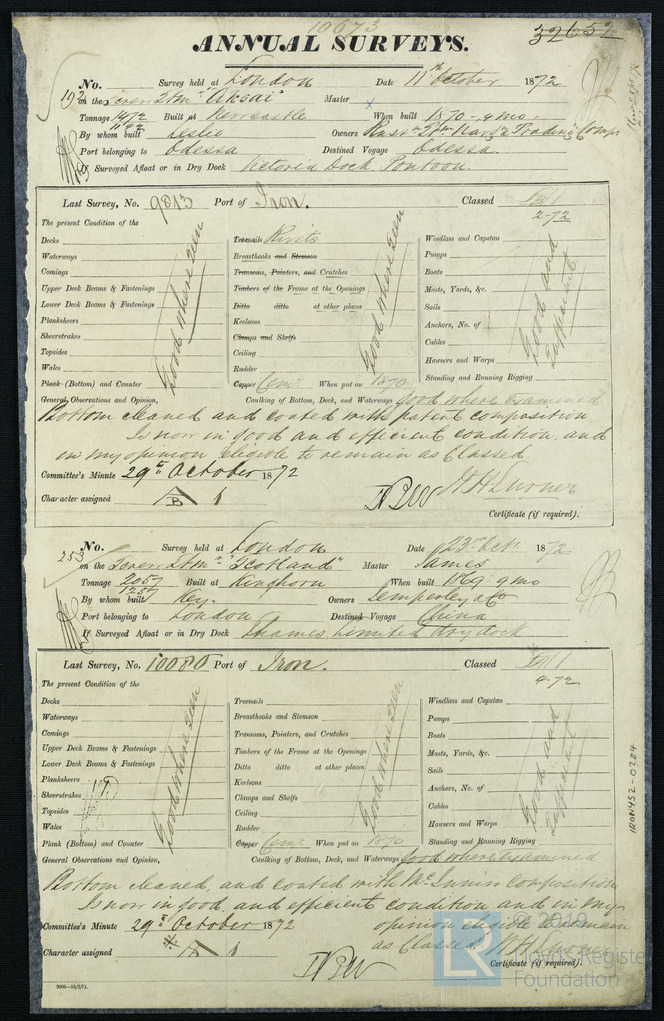 10673
32652
ANNUAL SURVEYS.
No. Survey held at London Date 11th October 1872
192 on the Screw Stmr "Aksai" Master
Tonnage 1472 Built at Newcastle When built 1870 - 4 mo.
1142
By whom built Leslie Owners Russn Stm Navn & Trading Compy
Port belonging to Odessa Destined Voyage Odessa.
If Surveyed Afloat or in Dry Dock Victoria Dock Pontoon.
Last Survey, No. 9813 Port of Iron. Classed
2-72
The present Condition of the
Decks Treenails Rivets Windlass and Capstan
Waterways Breasthooks and Stemson Pumps
Comings Transons, Pointers, and Crutches Boats
Upper Deck Beams & Fastenings Timbers of the Frame at the Openings Masts, Yards, &c.
Lower Deck Beams & Fastenings Ditto ditto at other places Sails
Planksheers Keelsons Anchors, No. of
Sheerstrakes Clamps and Shelfs Cables
Topsides Ceiling Hawsers and Warps
Wales Rudder Standing and Running Rigging
Plank (Bottom) and Counter Copper Cemt When put on 1870
Good where seen
Good where seen
Good and Sufficient
General Observations and Opinion, Caulking of Bottom, Deck, and Waterways good where examined
Bottom cleaned and coated with patent composition
Is now in good and efficient condition and
in my opinion eligible to remain as Classed.
Committee's Minute 29th October 1872
Character assigned B 1
W H Turner
Certificate (if required).
No. Survey held at London Date 23rd Oct. 1872
253 on the Screw Stmr "Scotland" Master James
Tonnage 2057 Built at Kinghorn When built 1869 9 mo
1257
By whom built Key. Owners Temperley & Co
Port belonging to London Destined Voyage China
If Surveyed Afloat or in Dry Dock Thames Limited dry dock
Last Survey, No. 10080 Port of Iron. Classed
4-72
The present Condition of the
Decks Treenails Windlass and Capstan
Waterways Breasthooks and Stemson Pumps
Comings Transoms, Pointers, and Crutches Boats
Upper Deck Beams & Fastenings Timbers of the Frame at the Openings Masts, Yards, &c.
Lower Deck Beams & Fastenings Ditto ditto at other places Sails
Planksheers Keelsons Anchors, No. of
Sheerstrakes Clamps and Shelfs Cables
Topsides Ceiling Hawsers and Warps
Wales Rudder Standing and Running Rigging
Plank (Bottom) and Counter Copper Cemt When put on 1870
Good where seen
Good where seen
Good and Sufficient
General Observations and Opinion, Caulking of Bottom, Deck, and Waterways good where examined
Bottom cleaned, and coated with McInnis composition
Is now in good, and efficient condition and in my
opinion eligible to remain
as Classed. W H Turner
Committee's Minute 29th October 1872
Character assigned
Certificate (if required).
IRON452-0284
LR © 2019
Lloyd's Register
Foundation